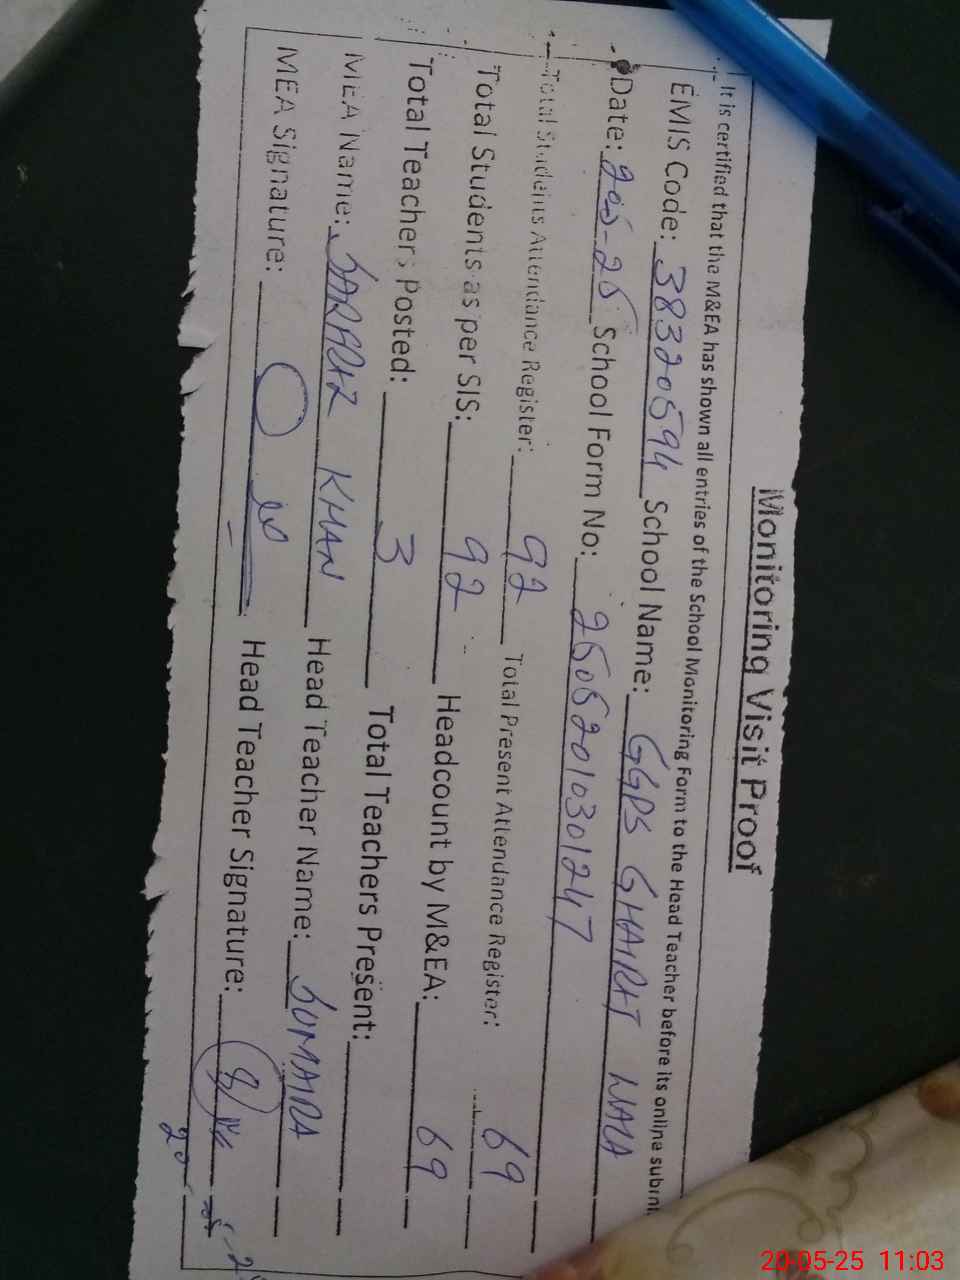 Monitoring Visit Proof
It is certified that the M&EA has shown all entries of the School Monitoring Form to the Head Teacher before its online submi
EMIS Code: 38320594 School Name: GGPS GHAIRAT WALA
Date: 205-25 School Form No: 25052010301247
Total Students Attendance Register: 92 Total Present Attendance Register: 69
Total Students as per SIS: 92 Headcount by M&EA: 69
Total Teachers Posted: 3 Total Teachers Present:
MEA Name: SARFARAZ KHAN Head Teacher Name: SUMAIRA
MEA Signature: Head Teacher Signature:
20-05-25 11:03